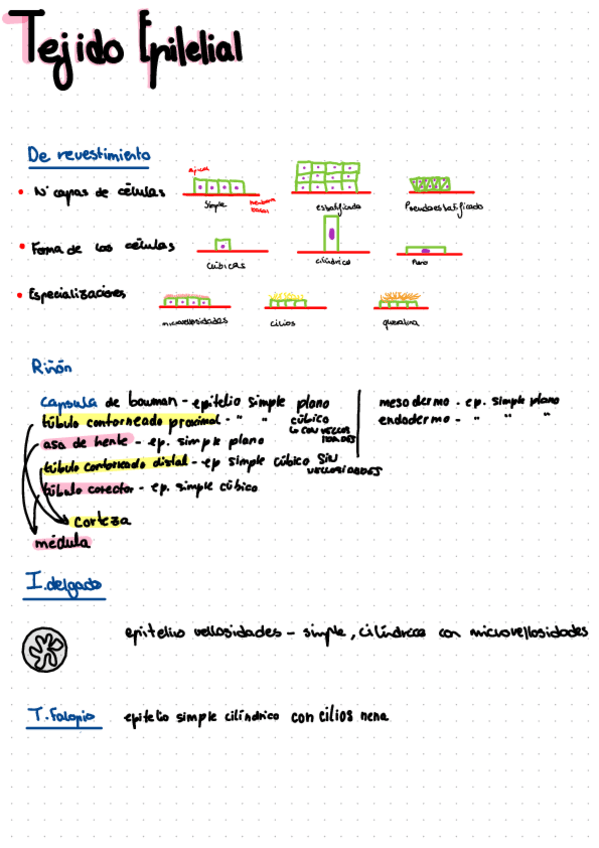 Tejido Epilelial
De revestimiento
apical
Nº capas de células
simple
membrana basal
estratificado
Pseudoestratificado
Forma de las células
cúbicas
cilíndrico
plano
Especializaciones
microvellosidades
cilios
queratina
Riñón
capsula de bowman - epitelio simple plano
túbulo contorneado proximal - " " cúbico
↳ con vellosidades
asa de henle - ep. simple plano
túbulo contorneado distal - ep simple cúbico sin vellosidades
túbulo colector - ep. simple cúbico
corteza
médula
mesodermo - ep. simple plano
endodermo - " " "
I. delgado
epitelio vellosidades - simple, cilíndrico con microvellosidades
T. Falopio
epitelio simple cilíndrico con cilios nena